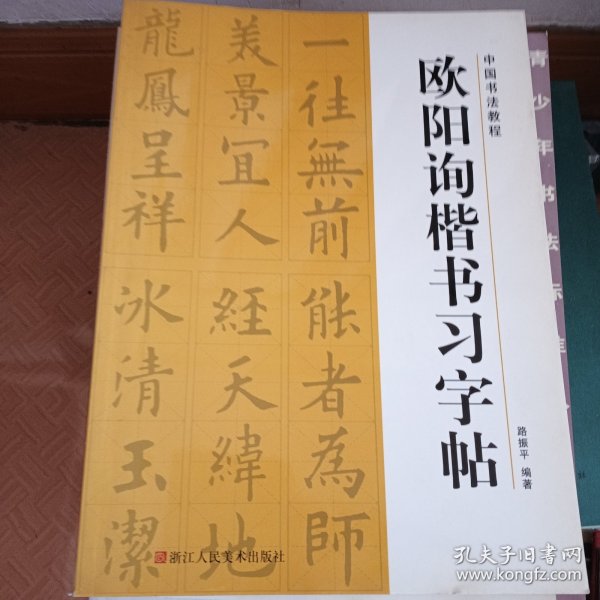 中国书法教程
欧阳询楷书习字帖
路振平 编著
一往無前
能者為師
美景宜人
經天緯地
龍鳳呈祥
冰清玉潔
浙江人民美术出版社
青少年书法
孔夫子旧书网
www.kongfz.com